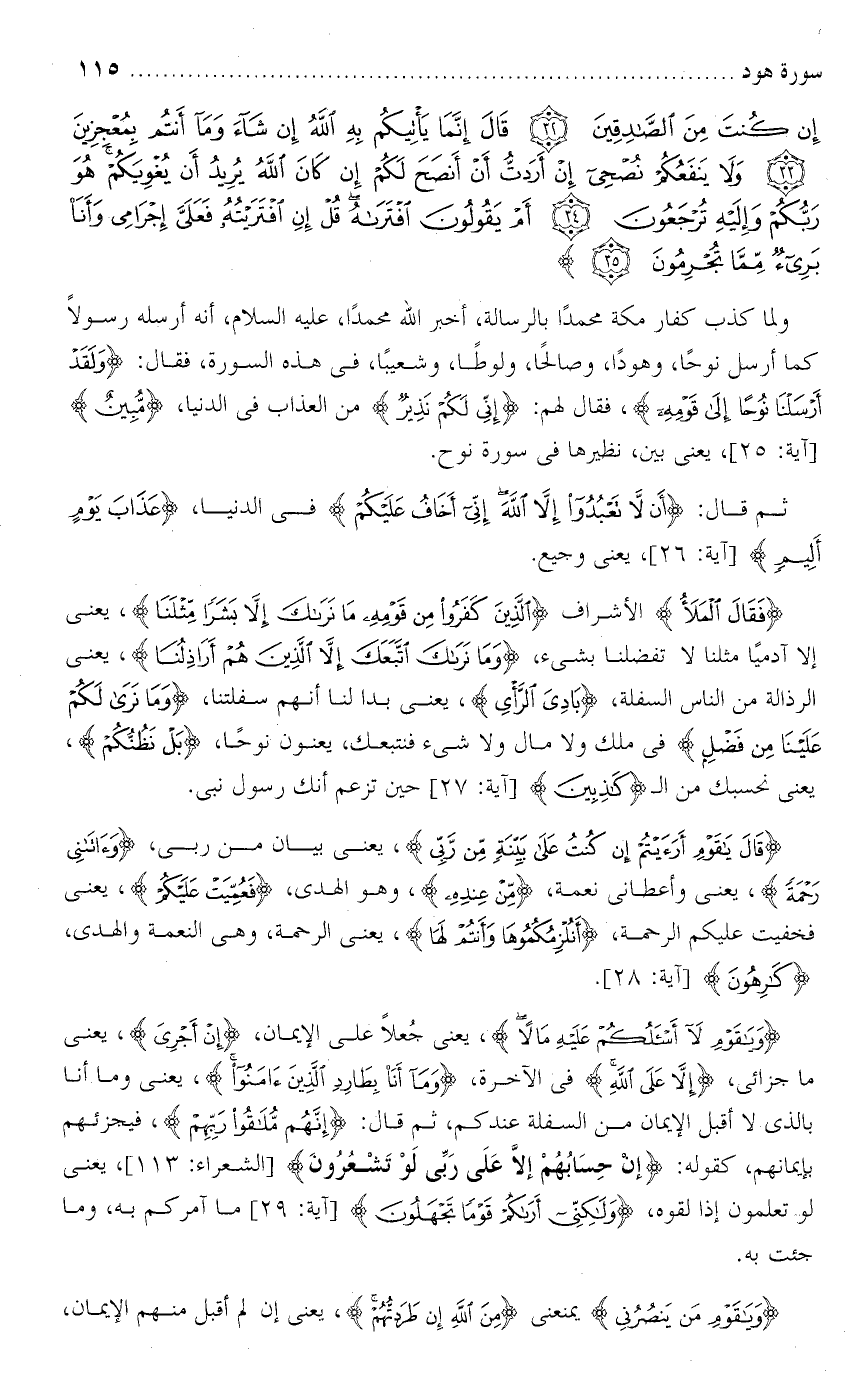 سورة هود ........................................................................ ١١٥
إِن كُنتَ مِنَ ٱلصَّـٰدِقِينَ ٣٢ قَالَ إِنَّمَا يَأْتِيكُم بِهِ ٱللَّهُ إِن شَآءَ وَمَآ أَنتُم بِمُعْجِزِينَ
٣٣ وَلَا يَنفَعُكُمْ نُصْحِىٓ إِنْ أَرَدتُّ أَنْ أَنصَحَ لَكُمْ إِن كَانَ ٱللَّهُ يُرِيدُ أَن يُغْوِيَكُمْ ۚ هُوَ
رَبُّكُمْ وَإِلَيْهِ تُرْجَعُونَ ٣٤ أَمْ يَقُولُونَ ٱفْتَرَىٰهُ ۖ قُلْ إِنِ ٱفْتَرَيْتُهُۥ فَعَلَىَّ إِجْرَامِى وَأَنَا۠
بَرِىٓءٌ مِّمَّا تُجْرِمُونَ ٣٥ ﴾
ولما كذب كفار مكة محمدًا بالرسالة، أخبر الله محمدًا، عليه السلام، أنه أرسله رسولاً
كما أرسل نوحًا، وهودًا، وصالحًا، ولوطًا، وشعيبًا، فى هذه السورة، فقال: ﴿وَلَقَدْ
أَرْسَلْنَا نُوحًا إِلَىٰ قَوْمِهِۦ﴾، فقال لهم: ﴿إِنِّى لَكُمْ نَذِيرٌ﴾ من العذاب فى الدنيا، ﴿مُّبِينٌ﴾
[آية: ٢٥]، يعنى بين، نظيرها فى سورة نوح.
ثم قال: ﴿أَن لَّا تَعْبُدُوٓا۟ إِلَّا ٱللَّهَ ۖ إِنِّىٓ أَخَافُ عَلَيْكُمْ﴾ فى الدنيا، ﴿عَذَابَ يَوْمٍ
أَلِيمٍ﴾ [آية: ٢٦]، يعنى وجيع.
﴿فَقَالَ ٱلْمَلَأُ﴾ الأشراف ﴿ٱلَّذِينَ كَفَرُوا۟ مِن قَوْمِهِۦ مَا نَرَىٰكَ إِلَّا بَشَرًا مِّثْلَنَا﴾، يعنى
إلا آدميًا مثلنا لا تفضلنا بشىء، ﴿وَمَا نَرَىٰكَ ٱتَّبَعَكَ إِلَّا ٱلَّذِينَ هُمْ أَرَاذِلُنَا﴾، يعنى
الرذالة من الناس السفلة، ﴿بَادِىَ ٱلرَّأْىِ﴾، يعنى بدا لنا أنهم سفلتنا، ﴿وَمَا نَرَىٰ لَكُمْ
عَلَيْنَا مِن فَضْلٍ﴾ فى ملك ولا مال ولا شىء فنتبعك، يعنون نوحًا، ﴿بَلْ نَظُنُّكُمْ﴾،
يعنى نحسبك من الـ﴿كَـٰذِبِينَ﴾ [آية: ٢٧] حين تزعم أنك رسول نبى.
﴿قَالَ يَـٰقَوْمِ أَرَءَيْتُمْ إِن كُنتُ عَلَىٰ بَيِّنَةٍ مِّن رَّبِّى﴾، يعنى بيان من ربى، ﴿وَءَاتَىٰنِى
رَحْمَةً﴾، يعنى وأعطانى نعمة، ﴿مِّنْ عِندِهِۦ﴾، وهو الهدى، ﴿فَعُمِّيَتْ عَلَيْكُمْ﴾، يعنى
فخفيت عليكم الرحمة، ﴿أَنُلْزِمُكُمُوهَا وَأَنتُمْ لَهَا﴾، يعنى الرحمة، وهى النعمة والهدى،
﴿كَـٰرِهُونَ﴾ [آية: ٢٨].
﴿وَيَـٰقَوْمِ لَآ أَسْـَٔلُكُمْ عَلَيْهِ مَالًا ۖ﴾، يعنى جُعلاً على الإيمان، ﴿إِنْ أَجْرِىَ﴾، يعنى
ما جزائى، ﴿إِلَّا عَلَى ٱللَّهِ ۚ﴾ فى الآخرة، ﴿وَمَآ أَنَا۠ بِطَارِدِ ٱلَّذِينَ ءَامَنُوٓا۟ ۚ﴾، يعنى وما أنا
بالذى لا أقبل الإيمان من السفلة عندكم، ثم قال: ﴿إِنَّهُم مُّلَـٰقُوا۟ رَبِّهِمْ﴾، فيجزئهم
بإيمانهم، كقوله: ﴿إِنْ حِسَابُهُمْ إِلاَّ عَلَى رَبِّى لَوْ تَشْعُرُونَ﴾ [الشعراء: ١١٣]، يعنى
لو تعلمون إذا لقوه، ﴿وَلَـٰكِنِّىٓ أَرَىٰكُمْ قَوْمًا تَجْهَلُونَ﴾ [آية: ٢٩] ما آمركم به، وما
جئت به.
﴿وَيَـٰقَوْمِ مَن يَنصُرُنِى﴾ يمنعنى ﴿مِنَ ٱللَّهِ إِن طَرَدتُّهُمْ ۚ﴾، يعنى إن لم أقبل منهم الإيمان،